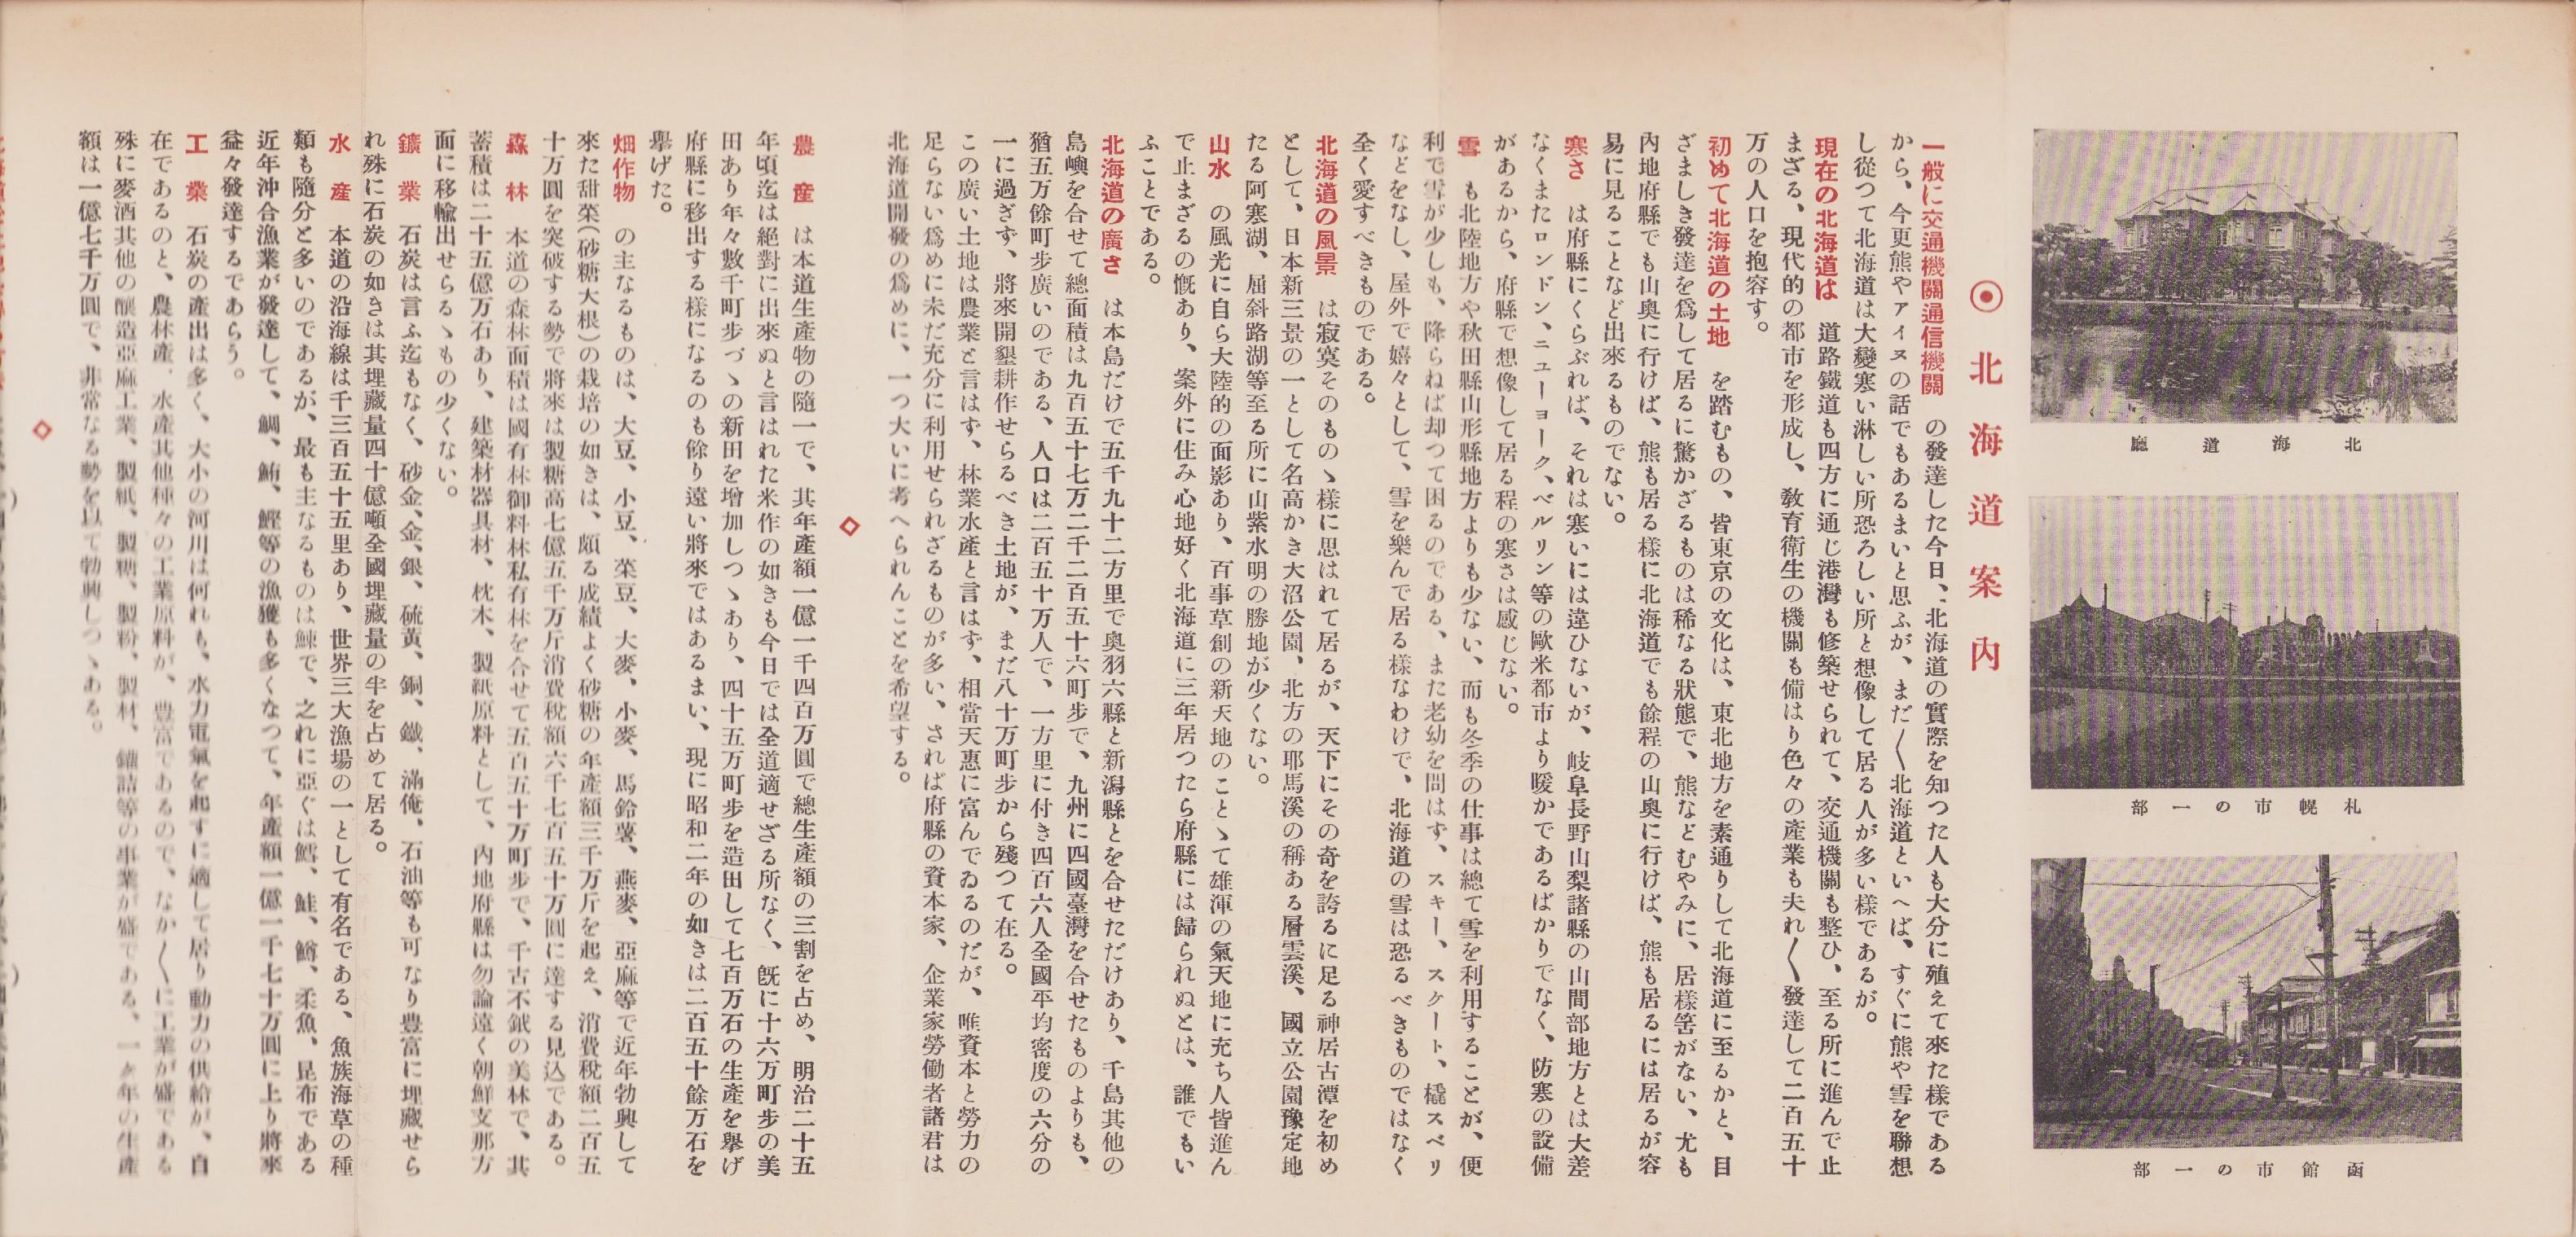 北海道廳
札幌市の一部
函館市の一部
◉北海道案內
一般に交通機關通信機關　の發達した今日、北海道の實際を知つた人も大分に殖えて來た樣である
から、今更熊やアイヌの話でもあるまいと思ふが、まだ〳〵北海道といへば、すぐに熊や雪を聯想
し從つて北海道は大變寒い淋しい所恐ろしい所と想像して居る人が多い樣であるが。
現在の北海道は　道路鐵道も四方に通じ港灣も修築せられて、交通機關も整ひ、至る所に進んで止
まざる、現代的の都市を形成し、敎育衞生の機關も備はり色々の產業も夫れ〳〵發達して二百五十
万の人口を抱容す。
初めて北海道の土地　を踏むもの、皆東京の文化は、東北地方を素通りして北海道に至るかと、目
ざましき發達を爲して居るに驚かざるものは稀なる狀態で、熊などむやみに、居樣筈がない、尤も
內地府縣でも山奧に行けば、熊も居る樣に北海道でも餘程の山奧に行けば、熊も居るには居るが容
易に見ることなど出來るものでない。
寒さ　は府縣にくらぶれば、それは寒いには違ひないが、岐阜長野山梨諸縣の山間部地方とは大差
なくまたロンドン、ニューヨーク、ベルリン等の歐米都市より暖かであるばかりでなく、防寒の設備
があるから、府縣で想像して居る程の寒さは感じない。
雪　も北陸地方や秋田縣山形縣地方よりも少ない、而も冬季の仕事は總て雪を利用することが、便
利で雪が少しも、降らねば却つて困るのである、また老幼を問はず、スキー、スケート、橇スベリ
などをなし、屋外で嬉々として、雪を樂んで居る樣なわけで、北海道の雪は恐るべきものではなく
全く愛すべきものである。
北海道の風景　は寂寞そのものゝ樣に思はれて居るが、天下にその奇を誇るに足る神居古潭を初め
として、日本新三景の一として名高かき大沼公園、北方の耶馬溪の稱ある層雲溪、國立公園豫定地
たる阿寒湖、屈斜路湖等至る所に山紫水明の勝地が少くない。
山水　の風光に自ら大陸的の面影あり、百事草創の新天地のことゝて雄渾の氣天地に充ち人皆進ん
で止まざるの慨あり、案外に住み心地好く北海道に三年居つたら府縣には歸られぬとは、誰でもい
ふことである。
北海道の廣さ　は本島だけで五千九十二方里で奧羽六縣と新潟縣とを合せただけあり、千島其他の
島嶼を合せて總面積は九百五十七万二千二百五十六町步で、九州に四國臺灣を合せたものよりも、
猶五万餘町步廣いのである、人口は二百五十万人で、一方里に付き四百六人全國平均密度の六分の
一に過ぎず、將來開墾耕作せらるべき土地が、まだ八十万町步から殘つて在る。
この廣い土地は農業と言はず、林業水產と言はず、相當天惠に富んでゐるのだが、唯資本と勞力の
足らない爲めに未だ充分に利用せられざるものが多い、されば府縣の資本家、企業家勞働者諸君は
北海道開發の爲めに、一つ大いに考へられんことを希望する。
◇
農產　は本道生產物の隨一で、其年產額一億一千四百万圓で總生產額の三割を占め、明治二十五
年頃迄は絕對に出來ぬと言はれた米作の如きも今日では全道適せざる所なく、旣に十六万町步の美
田あり年々數千町步づゝの新田を增加しつゝあり、四十五万町步を造田して七百万石の生產を擧げ
府縣に移出する樣になるのも餘り遠い將來ではあるまい、現に昭和二年の如きは二百五十餘万石を
擧げた。
畑作物　の主なるものは、大豆、小豆、菜豆、大麥、小麥、馬鈴薯、燕麥、亞麻等で近年勃興して
來た甜菜(砂糖大根)の栽培の如きは、頗る成績よく砂糖の年產額三千万斤を起え、消費稅額二百五
十万圓を突破する勢で將來は製糖高七億五千万斤消費稅額六千七百五十万圓に達する見込である。
森林　本道の森林面積は國有林御料林私有林を合せて五百五十万町步で、千古不鉞の美林で、其
蓄積は二十五億万石あり、建築材器具材、枕木、製紙原料として、內地府縣は勿論遠く朝鮮支那方
面に移輸出せらるゝもの少くない。
鑛業　石炭は言ふ迄もなく、砂金、金、銀、硫黃、銅、鐵、滿俺、石油等も可なり豊富に埋藏せら
れ殊に石炭の如きは其埋藏量四十億噸全國埋藏量の半を占めて居る。
水產　本道の沿海線は千三百五十五里あり、世界三大漁場の一として有名である、魚族海草の種
類も隨分と多いのであるが、最も主なるものは鰊で、之れに亞ぐは鱈、鮭、鱒、柔魚、昆布である
近年沖合漁業が發達して、鯛、鮪、鰹等の漁獲も多くなつて、年產額一億一千七十万圓に上り將來
益々發達するであらう。
工業　石炭の產出は多く、大小の河川は何れも、水力電氣を起すに適して居り動力の供給が、自
在であるのと、農林產、水產其他種々の工業原料が、豊富であるので、なか〳〵に工業が盛である
殊に麥酒其他の釀造亞麻工業、製紙、製糖、製粉、製材、罐詰等の事業が盛である、一ヶ年の生產
額は一億七千万圓で、非常なる勢を以て勃興しつゝある。
◇